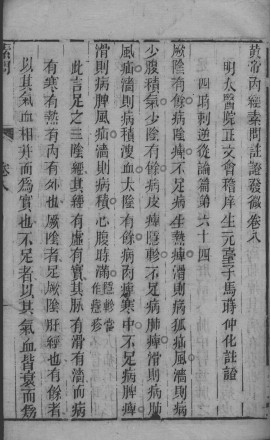 黃帝內經素問註證發微卷八
明太醫院正文會稽庠生元臺子馬蒔仲化註證
四時刺逆從論篇第六十四
厥陰有餘病陰痺不足病生熱痺滑則病狐疝風濇則病
少腹積氣少陰有餘病皮痺隱軫不足病肺痺滑則病肺
風疝濇則病積溲血太陰有餘病肉痺寒中不足病脾痺
滑則病脾風疝濇則病積心腹時滿 軫當作癮疹
此言足之三陰經其經有虛有實其脉有滑有濇而病
有寒有熱有內有外也厥陰者足厥陰肝經也有餘者
以其氣血相幷而爲實也不足者以其氣血皆衰而爲
素問
卷八